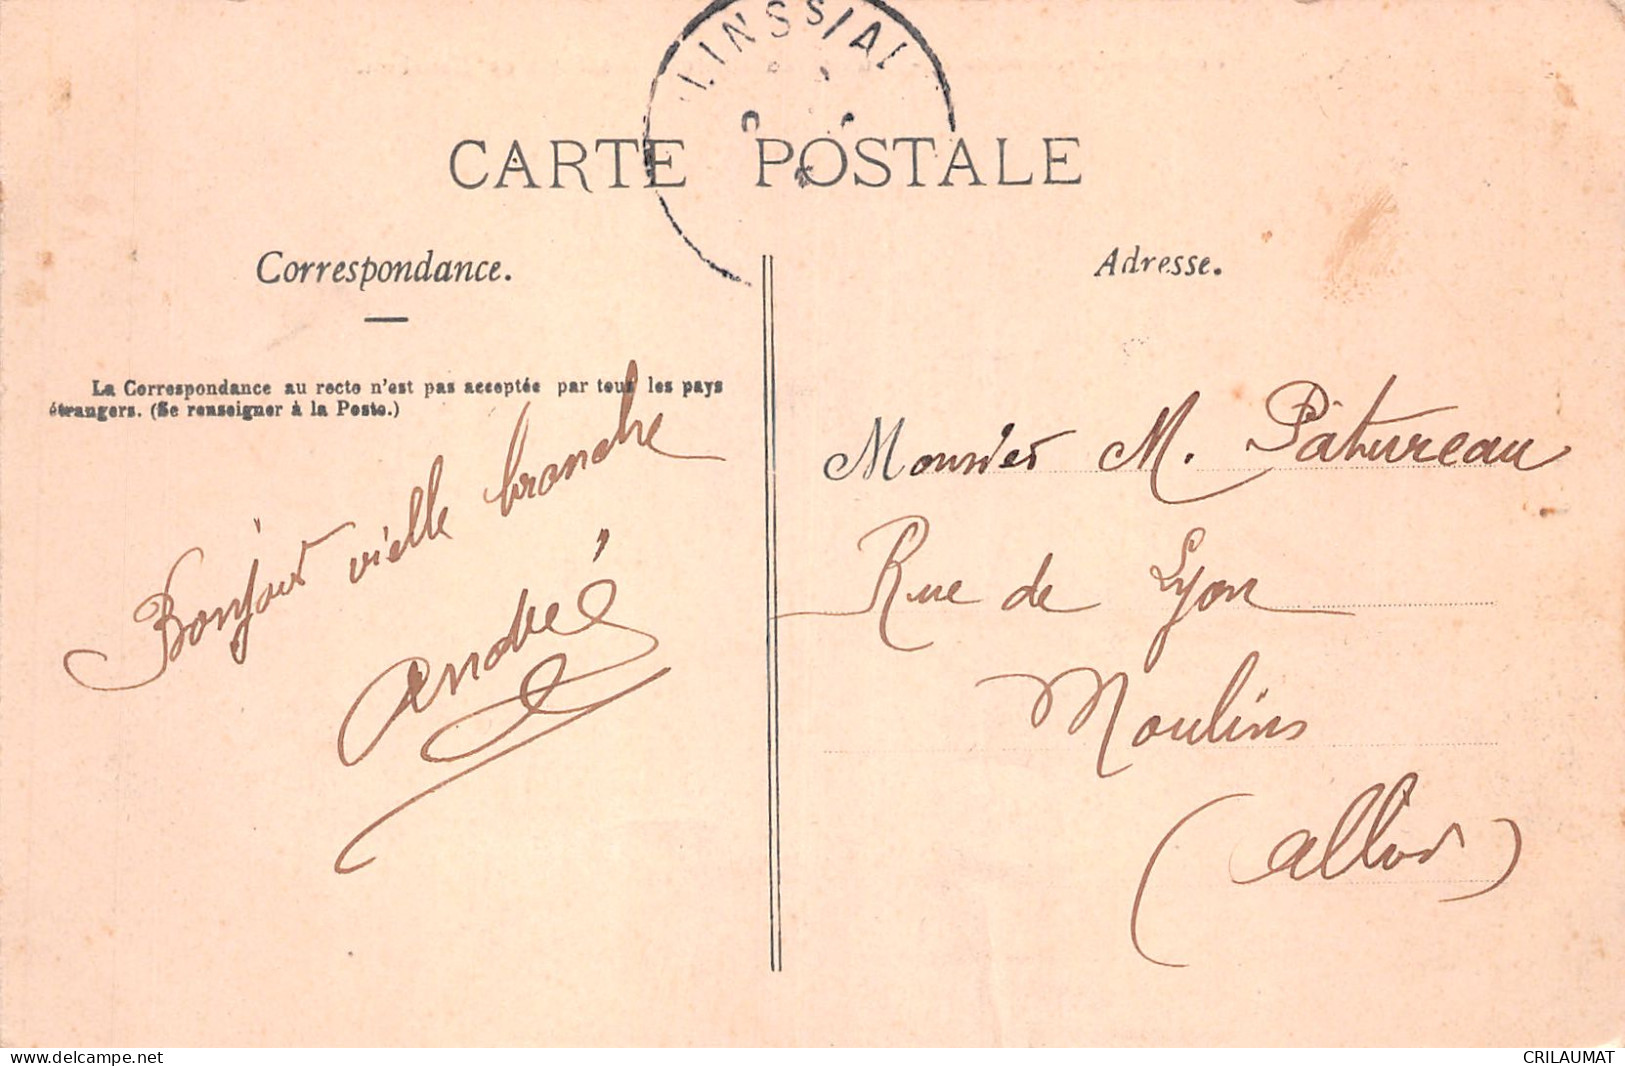 LINS S/AL
CARTE POSTALE
Correspondance.
Adresse.
La Correspondance au recto n'est pas acceptée par tous les pays
étrangers. (Se renseigner à la Poste.)
Bonjour vielle branche
André
Monsier M. Patureau
Rue de Lyon
Moulins
(Allier)
www.delcampe.net
CRILAUMAT